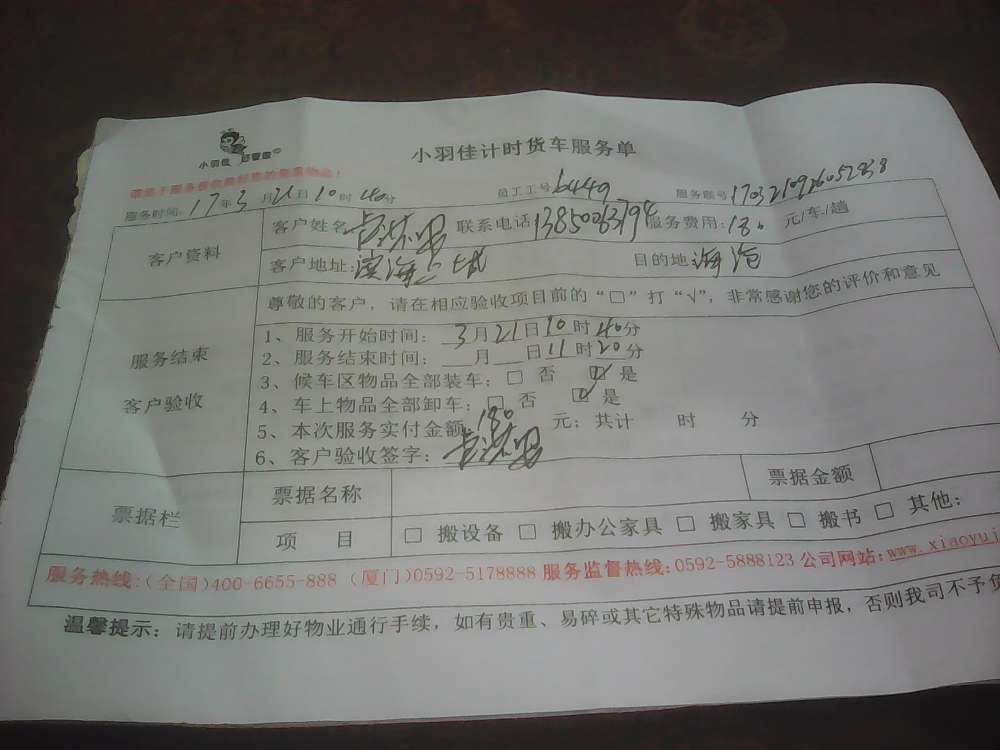 小羽佳
小羽佳计时货车服务单
服务时间: 17年3月21日10时40分 员工工号6449 服务账号1703210926052838
客户资料
客户姓名 联系电话13850063794 服务费用:180 元/车/趟
客户地址:滨海上城 目的地海沧
尊敬的客户，请在相应验收项目前的“□”打“√”，非常感谢您的评价和意见
服务结束
客户验收
1、服务开始时间: 3月21日10时40分
2、服务结束时间: 月 日11时20分
3、候车区物品全部装车: □ 否 ☑ 是
4、车上物品全部卸车: □ 否 ☑ 是
5、本次服务实付金额 180 元; 共计 时 分
6、客户验收签字:
票据栏
票据名称 票据金额
项 目 □ 搬设备 □ 搬办公家具 □ 搬家具 □ 搬书 □ 其他:
服务热线:(全国)400-6655-888 (厦门)0592-5178888 服务监督热线:0592-5888123 公司网站:www.xiaoyuj
温馨提示: 请提前办理好物业通行手续，如有贵重、易碎或其它特殊物品请提前申报，否则我司不予